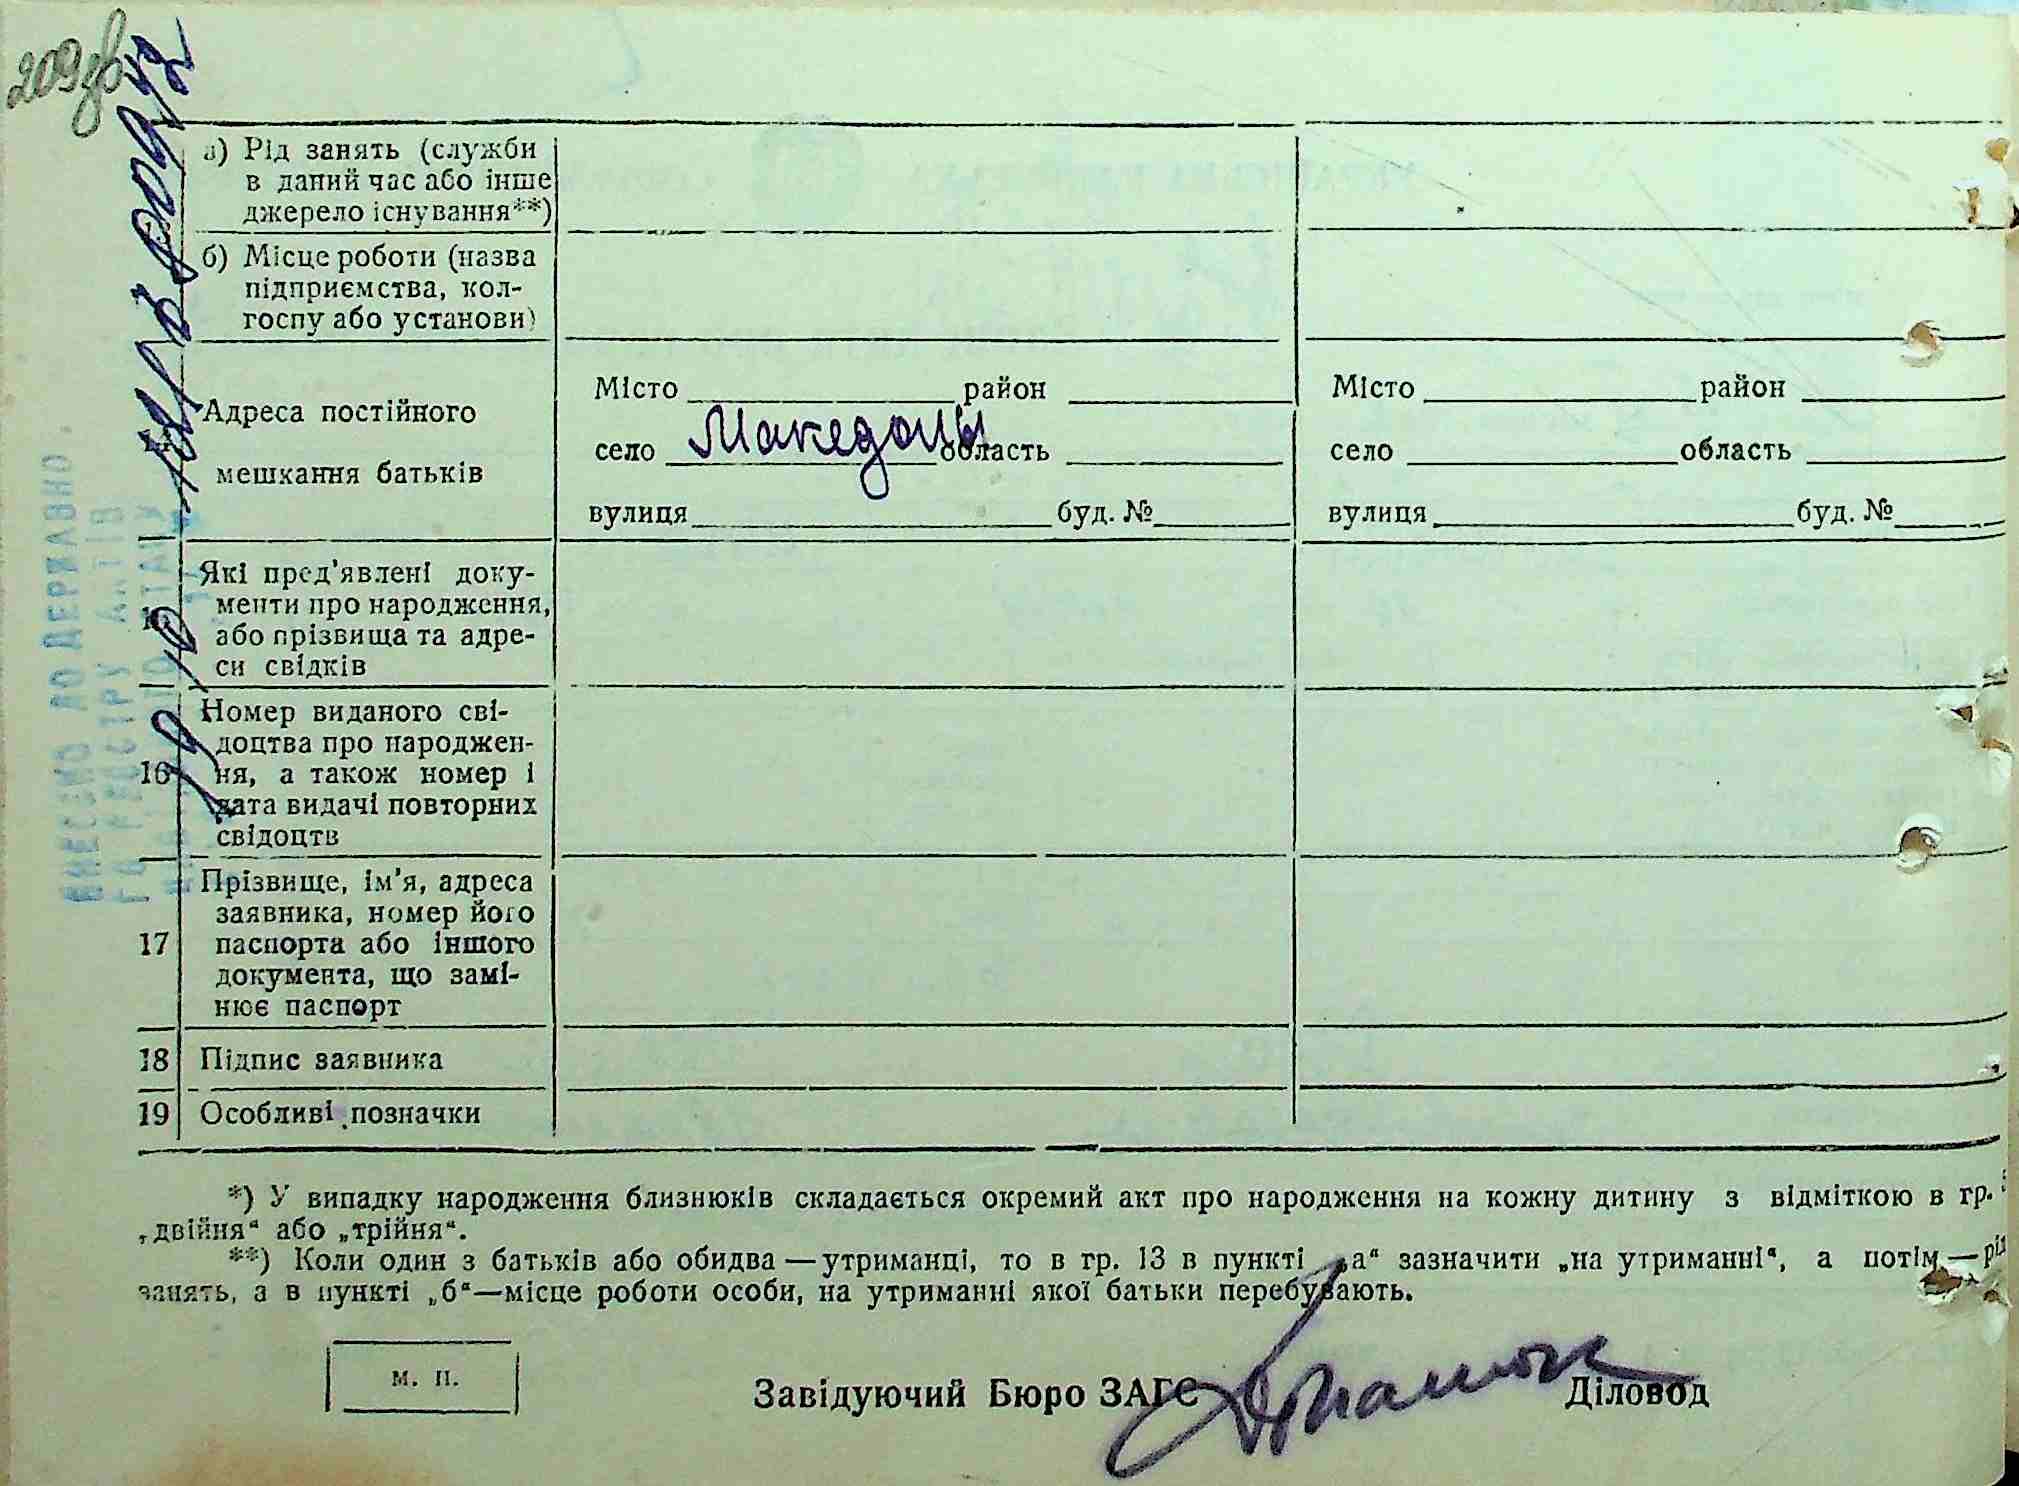 209зв
а) Рід занять (служби
в даний час або інше
джерело існування**)
б) Місце роботи (назва
підприємства, кол-
госпу або установи)
Адреса постійного
мешкання батьків
Місто район
село Македони область
вулиця буд. №
Місто район
село область
вулиця буд. №
Які пред'явлені доку-
менти про народження,
або прізвища та адре-
си свідків
16 Номер виданого сві-
доцтва про народжен-
ня, а також номер і
дата видачі повторних
свідоцтв
17 Прізвище, ім'я, адреса
заявника, номер його
паспорта або іншого
документа, що замі-
нює паспорт
18 Підпис заявника
19 Особливі позначки
*) У випадку народження близнюків складається окремий акт про народження на кожну дитину з відміткою в гр.
„двійня“ або „трійня“.
**) Коли один з батьків або обидва — утриманці, то в гр. 13 в пункті „а“ зазначити „на утриманні“, а потім — рід
занять, а в пункті „б“—місце роботи особи, на утриманні якої батьки перебувають.
м. п.
Завідуючий Бюро ЗАГС Діловод
ВНЕСЕНО ДО ДЕРЖАВНО
ГО РЕЄСТРУ АКТІВ